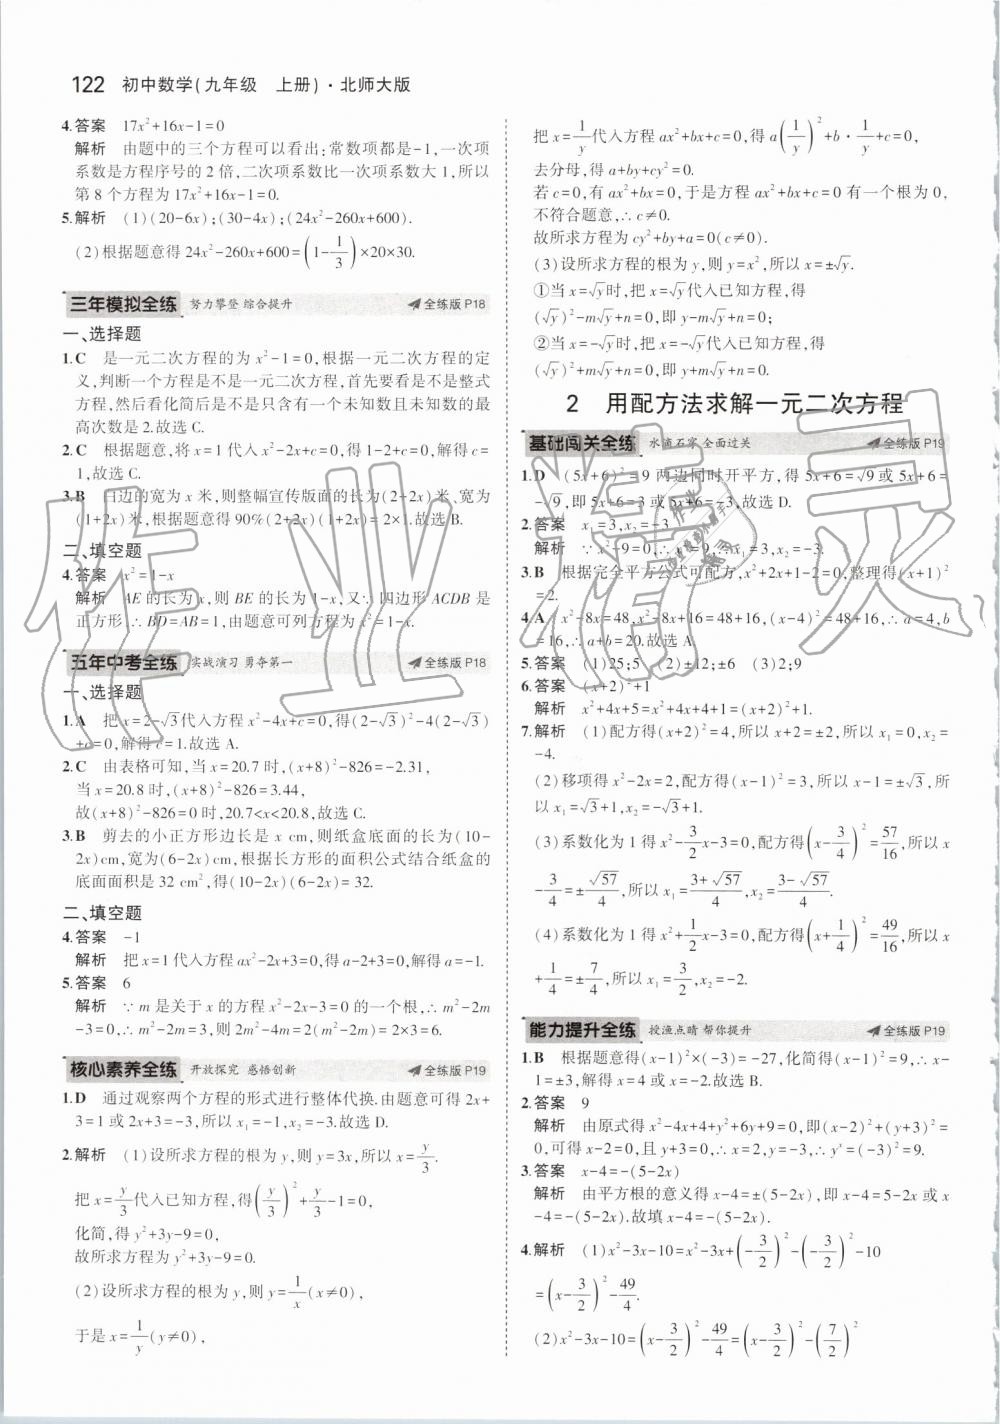 122 初中数学(九年级 上册)·北师大版
4.答案 17x²+16x-1=0
解析 由题中的三个方程可以看出:常数项都是-1,一次项
系数是方程序号的2倍,二次项系数比一次项系数大1,所以
第8个方程为17x²+16x-1=0.
5.解析 (1)(20-6x);(30-4x);(24x²-260x+600).
(2)根据题意得24x²-260x+600=(1-1/3)×20×30.
三年模拟全练 努力攀登 综合提升 全练版P18
一、选择题
1.C 是一元二次方程的为x²-1=0,根据一元二次方程的定
义,判断一个方程是不是一元二次方程,首先要看是不是整式
方程,然后看化简后是不是只含有一个未知数且未知数的最
高次数是2.故选C.
2.C 根据题意,将x=1代入x²-2x+c=0,得1-2+c=0,解得c=
1,故选C.
3.B 四边的宽为x米,则整幅宣传版面的长为(2+2x)米、宽为
(1+2x)米,根据题意得90%(2+2x)(1+2x)=2×1.故选B.
二、填空题
4.答案 x²=1-x
解析 AE的长为x,则BE的长为1-x,又∵四边形ACDB是
正方形,∴BD=AB=1,由题意可列方程为x²=1-x.
五年中考全练 实战演习 勇夺第一 全练版P18
一、选择题
1.A 把x=2-√3代入方程x²-4x+c=0,得(2-√3)²-4(2-√3)
+c=0,解得c=1.故选A.
2.C 由表格可知,当x=20.7时,(x+8)²-826=-2.31,
当x=20.8时,(x+8)²-826=3.44,
故(x+8)²-826=0时,20.7<x<20.8,故选C.
3.B 剪去的小正方形边长是x cm,则纸盒底面的长为(10-
2x)cm,宽为(6-2x)cm,根据长方形的面积公式结合纸盒的
底面面积是32 cm²,得(10-2x)(6-2x)=32.
二、填空题
4.答案 -1
解析 把x=1代入方程ax²-2x+3=0,得a-2+3=0,解得a=-1.
5.答案 6
解析 ∵m是关于x的方程x²-2x-3=0的一个根,∴m²-2m
-3=0,∴m²-2m=3,则2m²-4m=2(m²-2m)=2×3=6.
核心素养全练 开放探究 感悟创新 全练版P19
1.D 通过观察两个方程的形式进行整体代换.由题意可得2x+
3=1或2x+3=-3,所以x₁=-1,x₂=-3.故选D.
2.解析 (1)设所求方程的根为y,则y=3x,所以x=y/3.
把x=y/3代入已知方程,得(y/3)²+y/3-1=0,
化简,得y²+3y-9=0,
故所求方程为y²+3y-9=0.
(2)设所求方程的根为y,则y=1/x(x≠0),
于是x=1/y(y≠0),
把x=1/y代入方程ax²+bx+c=0,得a(1/y)²+b·1/y+c=0,
去分母,得a+by+cy²=0.
若c=0,有ax²+bx=0,于是方程ax²+bx+c=0有一个根为0,
不符合题意,∴c≠0.
故所求方程为cy²+by+a=0(c≠0).
(3)设所求方程的根为y,则y=x²,所以x=±√y.
①当x=√y时,把x=√y代入已知方程,得
(√y)²-m√y+n=0,即y-m√y+n=0;
②当x=-√y时,把x=-√y代入已知方程,得
(√y)²+m√y+n=0,即y+m√y+n=0.
2 用配方法求解一元二次方程
基础闯关全练 水滴石穿 全面过关 全练版P19
1.D (5x+6)²=9两边同时开平方,得5x+6=√9或5x+6=
-√9,即5x+6=3或5x+6=-3,故选D.
2.答案 x₁=3,x₂=-3
解析 ∵x²-9=0,∴x²=9,∴x₁=3,x₂=-3.
3.B 根据完全平方公式可配方,x²+2x+1-2=0,整理得(x+1)²
=2.
4.A x²-8x=48,x²-8x+16=48+16,(x-4)²=48+16,∴a=4,b
=16,∴a+b=20.故选A.
5.答案 (1)25;5 (2)±12;±6 (3)2;9
6.答案 (x+2)²+1
解析 x²+4x+5=x²+4x+4+1=(x+2)²+1.
7.解析 (1)配方得(x+2)²=4,所以x+2=±2,所以x₁=0,x₂=
-4.
(2)移项得x²-2x=2,配方得(x-1)²=3,所以x-1=±√3,所
以x₁=√3+1,x₂=-√3+1.
(3)系数化为1得x²-3/2x-3=0,配方得(x-3/4)²=57/16,所以x
-3/4=±√57/4,所以x₁=(3+√57)/4,x₂=(3-√57)/4.
(4)系数化为1得x²+1/2x-3=0,配方得(x+1/4)²=49/16,所以x
+1/4=±7/4,所以x₁=3/2,x₂=-2.
能力提升全练 授渔点睛 帮你提升 全练版P19
1.B 根据题意得(x-1)²×(-3)=-27,化简得(x-1)²=9,∴x-
1=±3,解得x=4或x=-2.故选B.
2.答案 9
解析 由原式得x²-4x+4+y²+6y+9=0,即(x-2)²+(y+3)²=
0,可得x-2=0,且y+3=0,∴x=2,y=-3,∴yˣ=(-3)²=9.
3.答案 x-4=-(5-2x)
解析 由平方根的意义得x-4=±(5-2x),即x-4=5-2x或x
-4=-(5-2x).故填x-4=-(5-2x).
4.解析 (1)x²-3x-10=x²-3x+(-3/2)²-(-3/2)²-10
=(x-3/2)²-49/4.
(2)x²-3x-10=(x-3/2)²-49/4=(x-3/2)²-(7/2)²
作业精灵